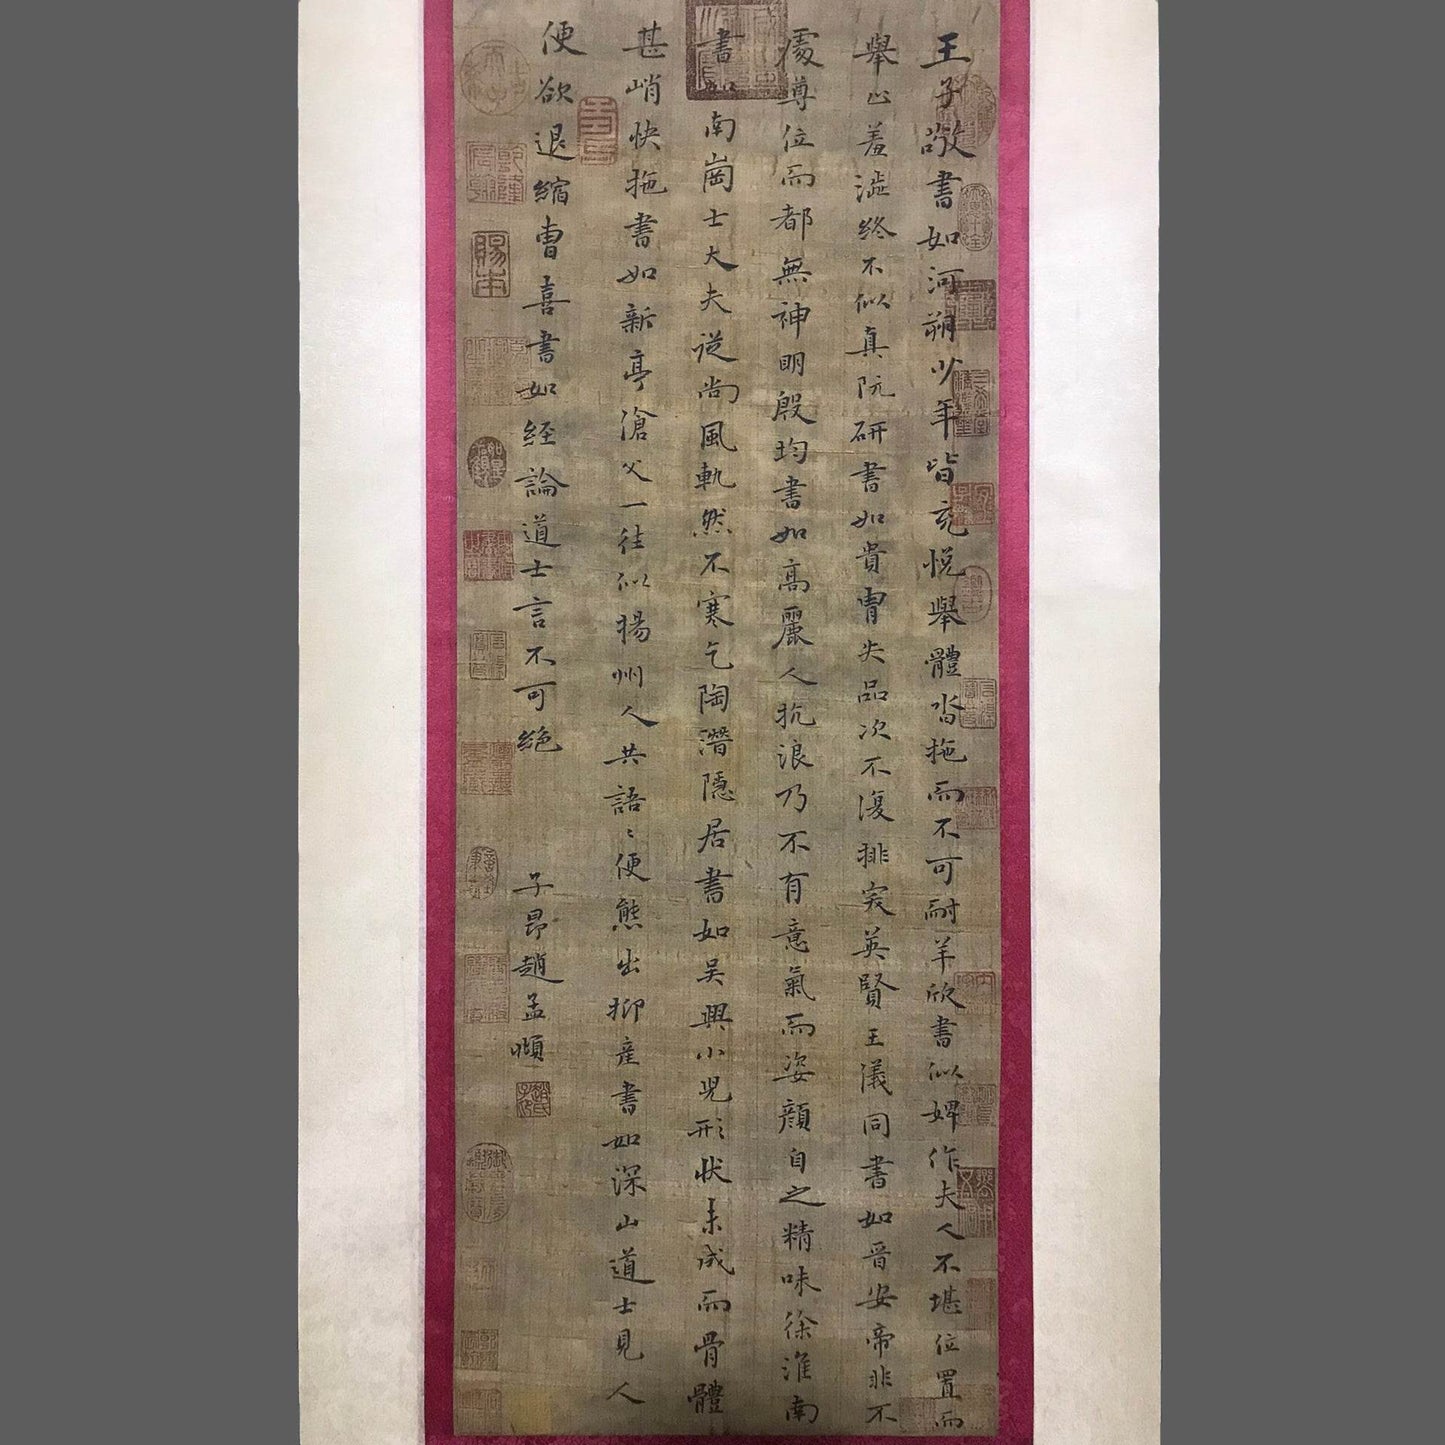 王子敬書如河朔少年皆充悅舉體沓拖而不可耐羊欣書似婢作夫人不堪位置而
舉止羞澁終不似真阮研書如貴胄失品次不復排突英賢王儀同書如晉安帝非不
處尊位而都無神明殷均書如高麗人抗浪乃不有意氣而姿顏自之精味徐淮南
書如南崗士大夫從尚風軌然不寒乞陶潛隱居書如吴興小兒形狀未成而骨體
甚峭快拖書如新亭滄父一往似揚州人共語〻便態出柳產書如深山道士見人
便欲退縮曹喜書如經論道士言不可絶
子昂趙孟頫
賜本